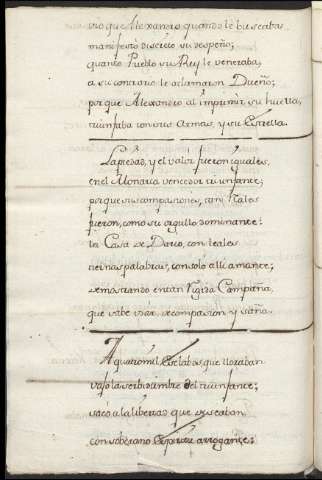 vio que Alexandro quando le buscaba
manifestó discreto su despeño;
quanto Pueblo su Rey le veneraba,
a su contrario le aclamaron Dueño;
porque Alexandro al imprimir su huella,
triunfaba con sus Armas, y su Estrella.
La piedad, y el valor fueron iguales,
en el Monarca vencedor triunfante;
porque sus compasiones, con
fueron, como su orgullo dominante:
la Casa de Dario, con leales
tiernas palabras, consoló allí amante;
demostrando en tan rigida Campaña,
que sabe usar de compasion, y saña.
A quatro mil Esclabos que lloraban
vajo la servidumbre del triunfante;
sacó a la libertad que deseaban
con soberano Espiritu arrogante;